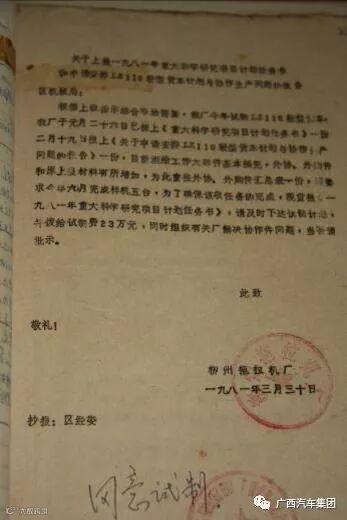 关于上报一九八一年重大科学研究项目计划任务书
和申请安排LZ110轻型货车计划与协作生产问题的报告
区机械局:
根据上级指示结合市场调查,我厂今年试制LZ110轻型货车,
我厂于元月二十六日已报上《重大科学研究项目计划任务书》一份
二月十九日报上《关于申请安排LZ110轻型货车计划与协作生产
问题的报告》一份,目前测绘工作大部份基本搞完,外协、外购件
和床上及材料有所增加,为此重报外协、外购件汇总表一份,
求今年六月完成样机五台,为了确保该项任务的完成,现重报
八一年重大科学研究项目计划任务书》,请及时下达试制计划,
拨给试制费23万元,同时组织有关厂解决协作件问题,当否请
批示。
此致
敬礼!
柳州拖拉机厂
一九八一年三月三十日
抄报:区经委
同意试制
大蚁跨境
广西汽车集团